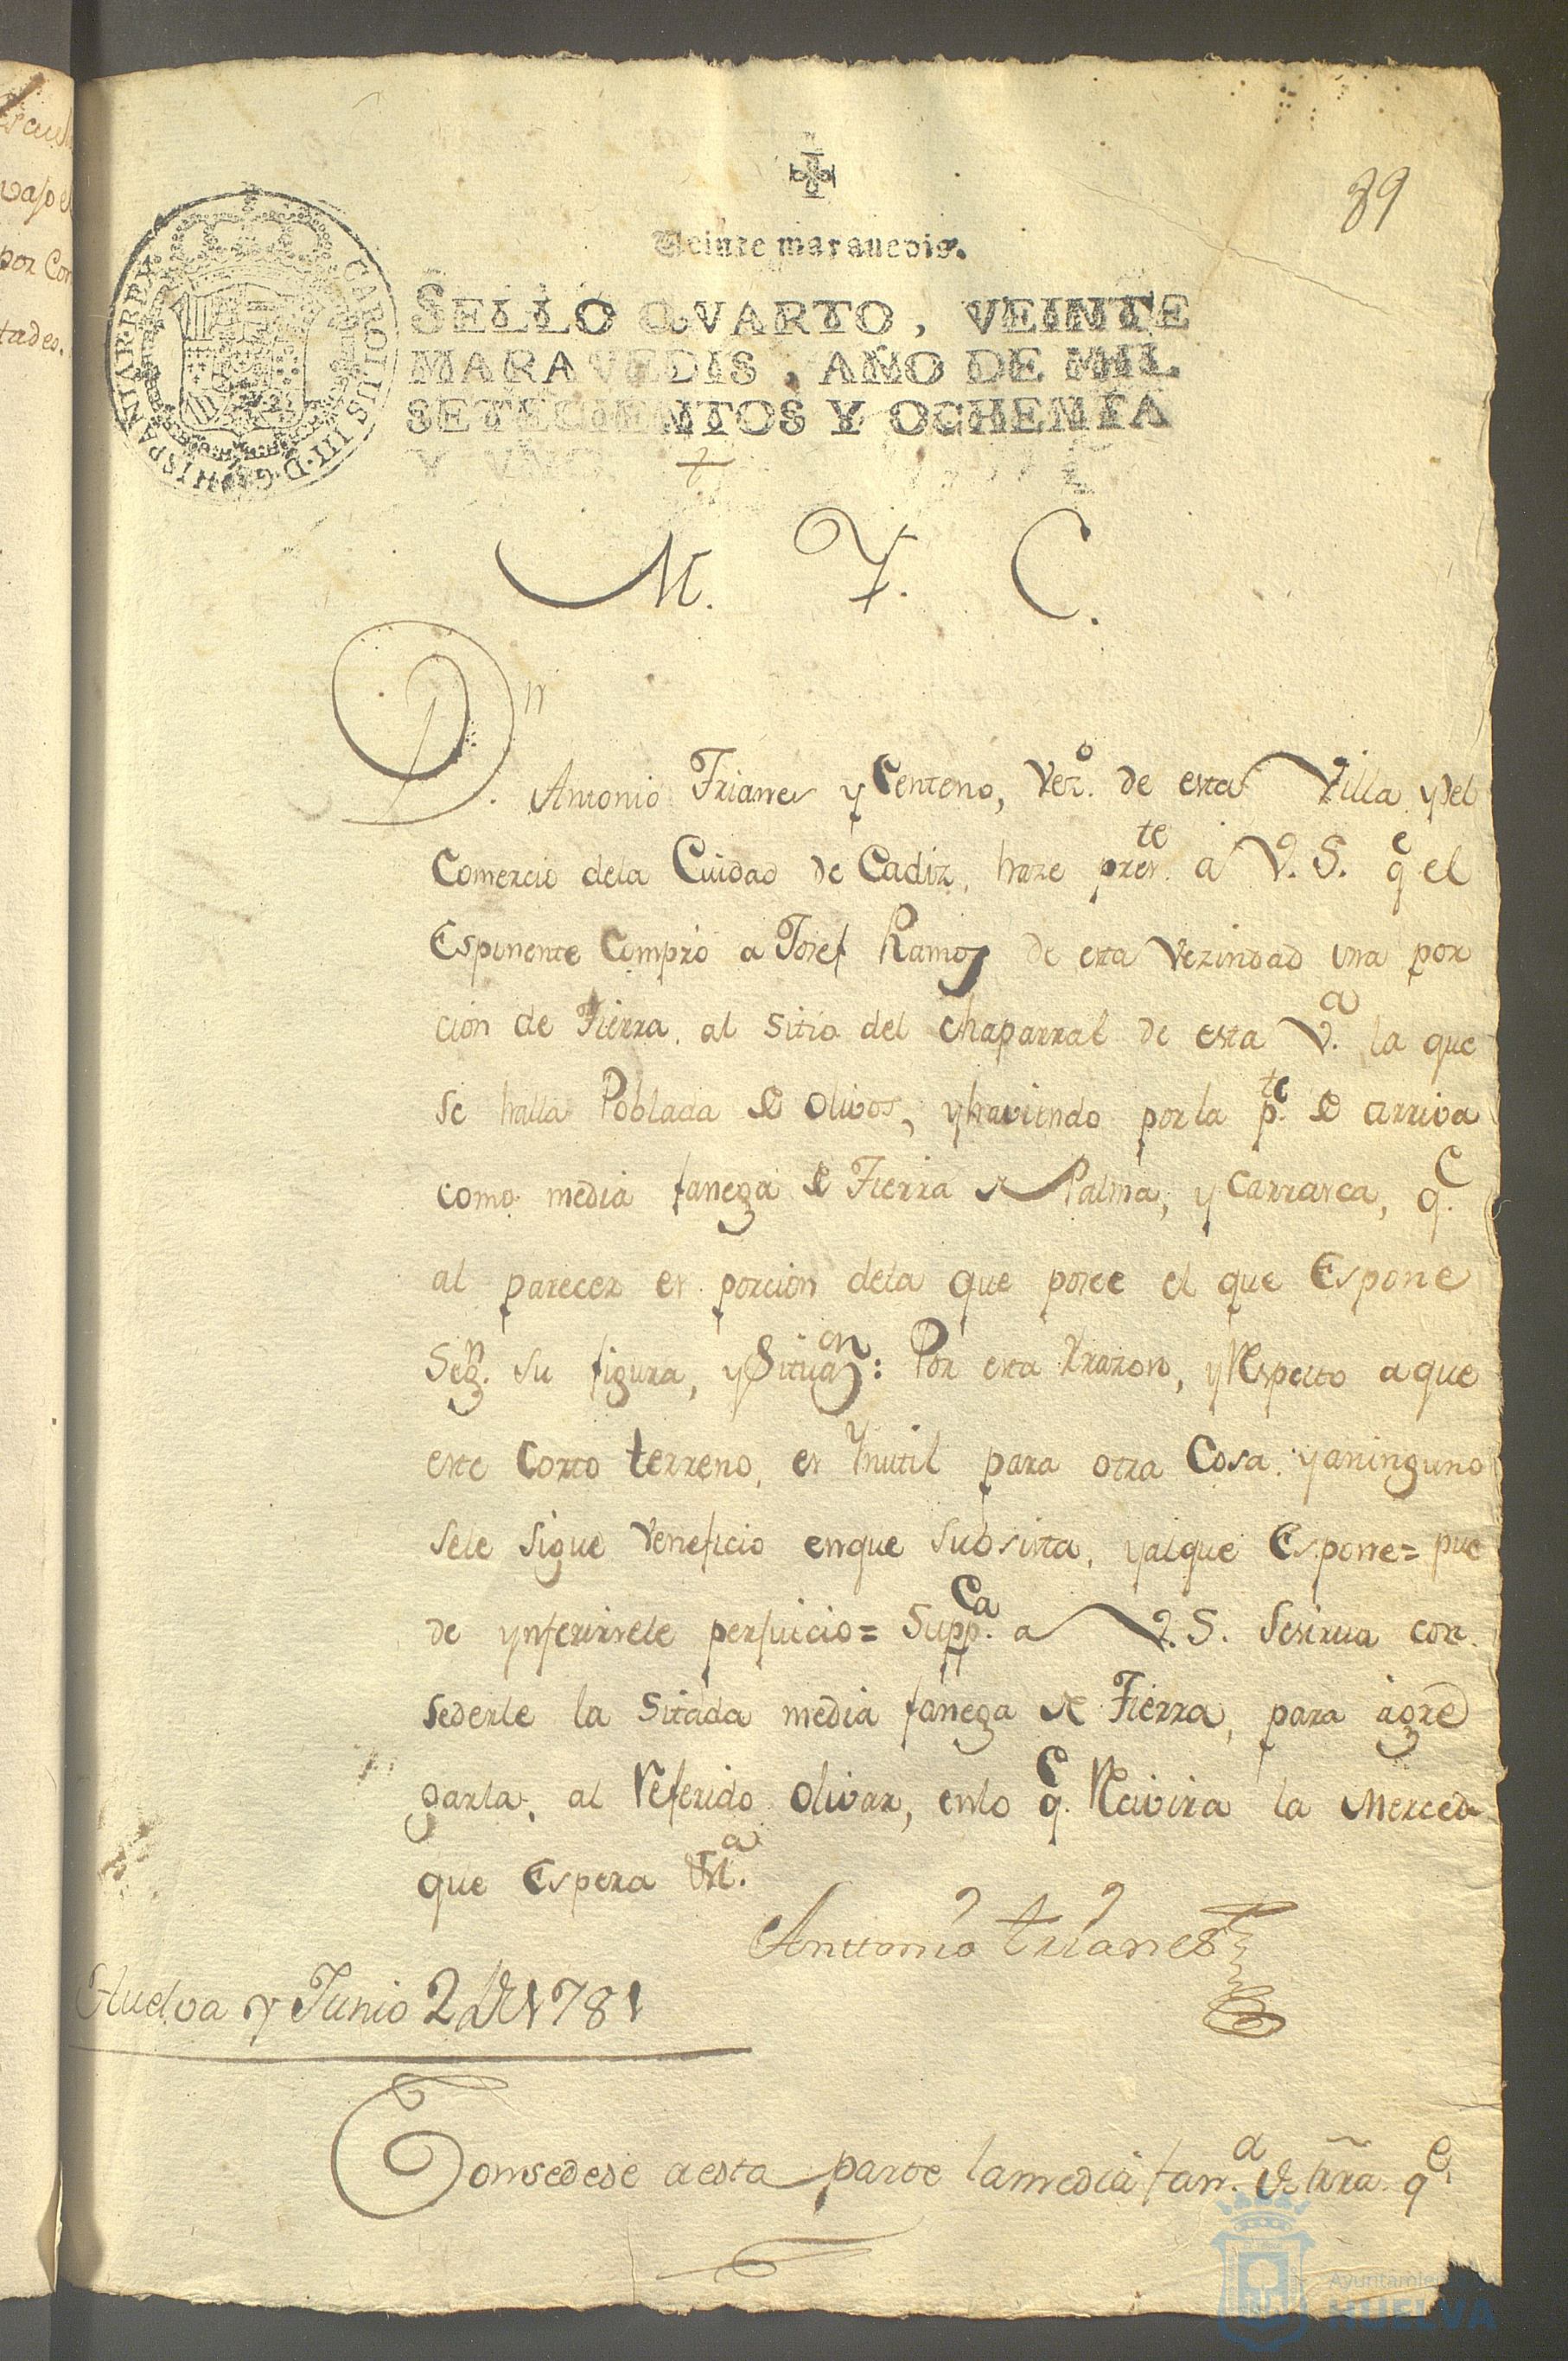 89
Veinte maravedis.
SELLO QVARTO, VEINTE
MARAVEDIS, AÑO DE MIL
SETECIENTOS Y OCHENTA
Y VNO.
CAROLUS III D.G. HISPANIAR. REX
M. Y. C.
Dn. Antonio Trianes y Centeno, Vezo. de esta Villa y del
Comercio dela Cuidad de Cadiz, haze preste. a V. S. qe el
Esponente Compró a Josef Ramos de esta Vezindad una por
cion de Tierra al Sitio del Chaparral de esta Va. la que
se halla Poblada de Olivos, y haviendo por la pte. de arriva
como media fanega de Tierra de Palma, y Carrasca, qe.
al parecer es porcion dela que posee el que Espone
Segn. su figura, y Situaon: Por esta Rrazon, y Respecto a que
este Corto terreno, es Ynutil para otra Cosa, y aninguno
sele sigue Veneficio enque subsista, y alque Espone= pue
de ynferirsele perjuicio= Suppca. a V. S. se sirva con
sederle la Sitada media fanega de Tierra, para agre
garla, al Referido Olivar, enlo qe. Recivira la Merced
que Espera
Anttonio trianes
Huelva y Junio 2 de 1781
Consedese a esta parte la media fana. de trra. qe.
Ayuntamiento de
HUELVA